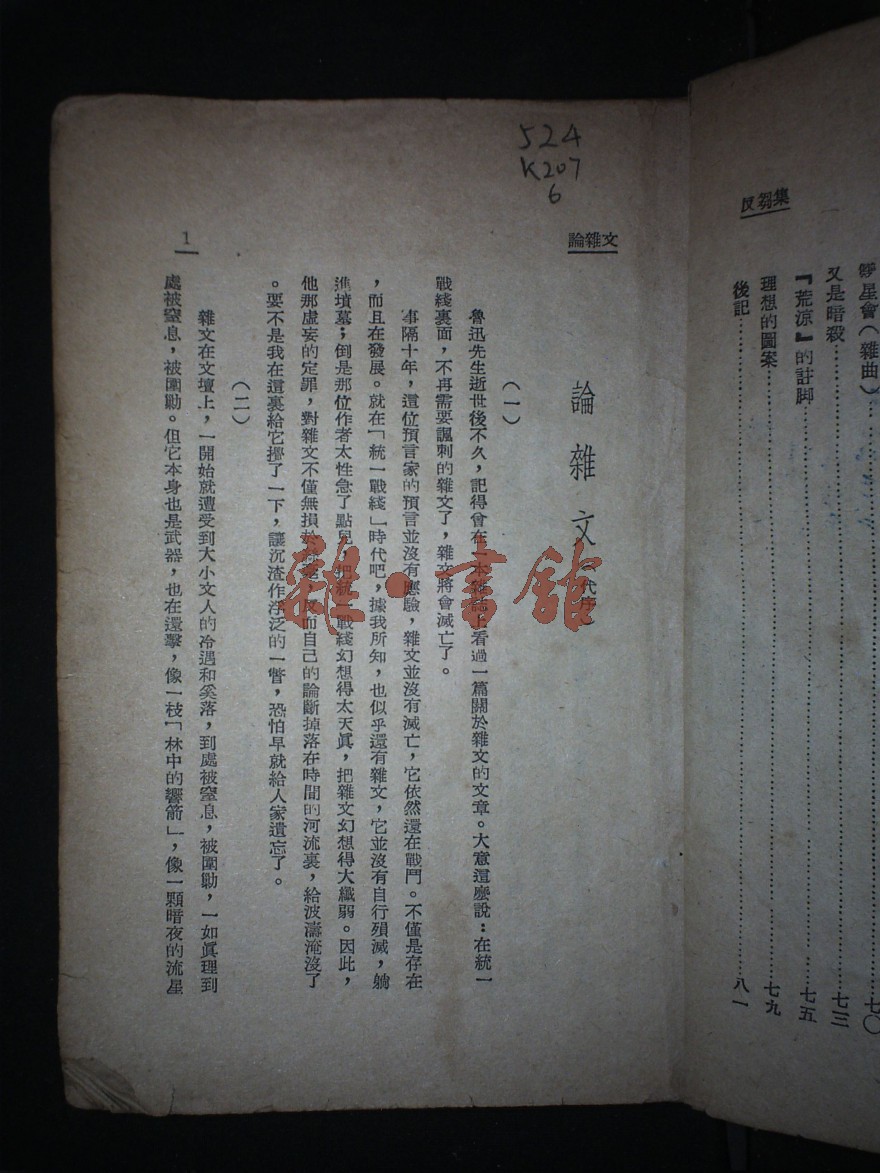 反芻集
星會（雜曲）……七〇
又是暗殺……七三
『荒涼』的註脚……七五
理想的圖案……七九
後記……八一
524
K207
6
論雜文
論雜文（代序）
（一）
魯迅先生逝世後不久，記得曾在一本雜誌上看過一篇關於雜文的文章。大意這麼說：在統一
戰綫裏面，不再需要諷刺的雜文了，雜文將會滅亡了。
事隔十年，這位預言家的預言並沒有應驗，雜文並沒有滅亡，它依然還在戰鬥。不僅是存在
，而且在發展。就在「統一戰綫」時代吧，據我所知，也似乎還有雜文，它並沒有自行殞滅，躺
進墳墓；倒是那位作者太性急了點兒，把統一戰綫幻想得太天眞，把雜文幻想得大纖弱。因此，
他那虛妄的定罪，對雜文不僅無損於絲毫，反而自己的論斷掉落在時間的河流裏，給波濤淹沒了
。要不是我在這裏給它攪了一下，讓沉渣作浮泛的一瞥，恐怕早就給人家遺忘了。
（二）
雜文在文壇上，一開始就遭受到大小文人的冷遇和奚落，到處被窒息，被圍勦，一如眞理到
處被窒息，被圍勦。但它本身也是武器，也在還擊，像一枝「林中的響箭」，像一顆暗夜的流星
1
雜·書館